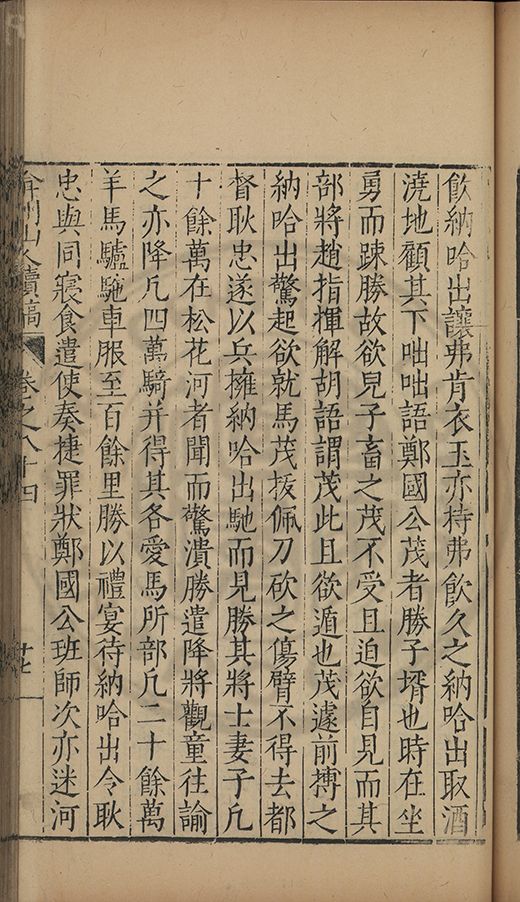 飲納哈出讓弗肯衣玉亦持弗飲久之納哈出取酒
澆地顧其下咄咄語鄭國公茂者勝子壻也時在坐
勇而踈勝故欲兒子畜之茂不受且迫欲自見而其
部將趙指揮解胡語謂茂此且欲遁也茂遽前搏之
納哈出驚起欲就馬茂拔佩刀砍之傷臂不得去都
督耿忠遂以兵擁納哈出馳而見勝其將士妻子凡
十餘萬在松花河者聞而驚潰勝遣降將觀童往諭
之亦降凡四萬騎并得其各愛馬所部凡二十餘萬
羊馬驢駞車服至百餘里勝以禮宴待納哈出令耿
忠與同寢食遣使奏捷罪狀鄭國公班師次亦迷河
弇州山人續稿 卷之八十四 廿七